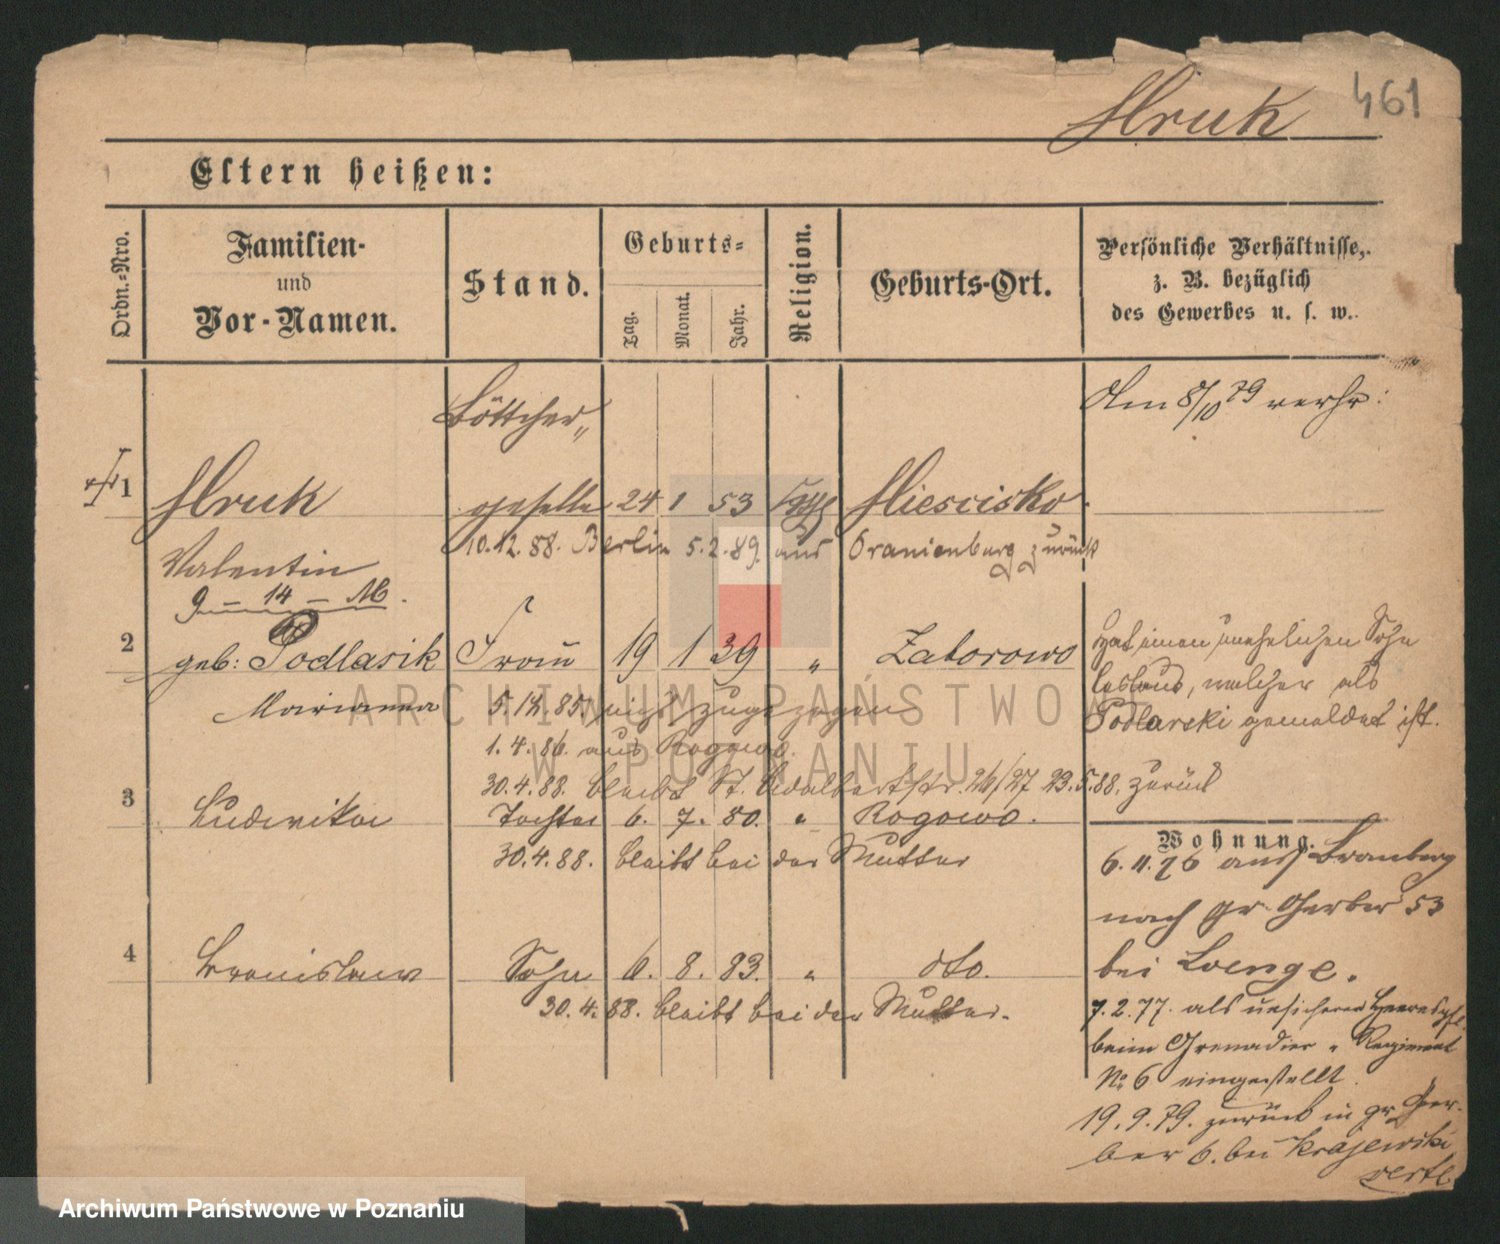 461
Hruk
Eltern heißen:
Ordn.-Nro.
Familien-
und
Vor-Namen.
Stand.
Geburts-
Tag.
Monat.
Jahr.
Religion.
Geburts-Ort.
Persönliche Verhältnisse,
z. B. bezüglich
des Gewerbes u. s. w.
Am 8/10 79 verhr:
Böttcher
1 Hruk geselle 24 1 53 Miescisko
10.12.88. Berlin 5.2.89. aus Oranienburg zurück
Valentin
9 – 14 – M.
2 geb: Podlasik Frau 19 1 39 " Zatorowo
Hat einen unehelichen Sohn
welcher als
Podlarski gemeldet ist.
Marianna 5.12.85. nicht zugezogen
1.4.86. aus Rogowo.
30.4.88. bleibt St. Adalbertstr. 26/27 23.5.88. zurück
3 Ludwika Tochter 6. 7. 80. " Rogowo.
30.4.88. bleibt bei der Mutter
4 Bronislaw Sohn 6. 8. 83. " dto.
30.4.88. bleibt bei der Mutter.
Wohnung.
6.11.76 aus Bromberg
nach Gr. Gerber 53
bei Loenge.
7.2.77. als unsicherer Heerespfl.
beim Grenadier - Regiment
No 6 eingestellt.
19.9.79. zurück in gr. Ger-
ber 6. bei Krajewski
verte
ARCHIWUM PAŃSTWOWE
W POZNANIU
Archiwum Państwowe w Poznaniu